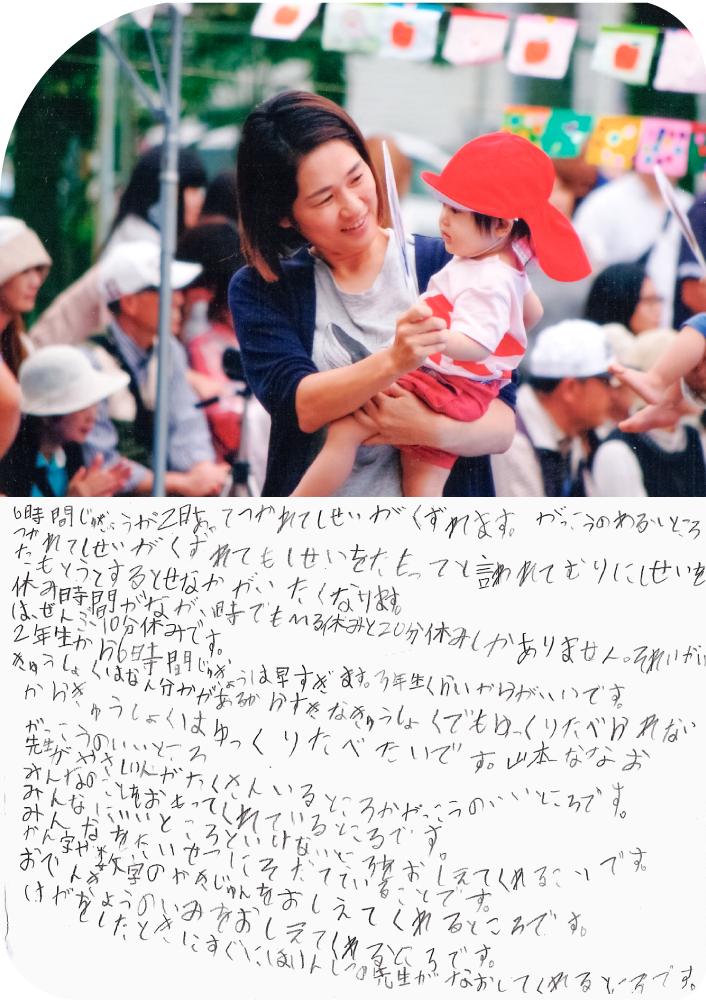 時間じゅぎょうが2時 つかれてしせいがくずれます。 がっこうのわるいところ
つかれてしせいがくずれてもしせいをたもってと言われてむりにしせいを
たもとうとするとせなかがいたくなります。
休み時間がなが、い時でもひる休みと20分休みしかありません。それいがい
は、ぜんぶ10分休みです。
2年生から6時間じゅぎょうは早すぎます。3年生くらいからがいいです。
きゅうしょくはなん分かがあるからすきなきゅうしょくでもゆっくりたべられない
からきゅうしょくはゆっくりたべたいです。山本ななお
がっこうのいいところ
先生がやさしい
みんなのことをおもってくれているところです。
みんなにいいところといけないところをおしえてくれることです。
みんなをたいせつにそだてていることです。
かん字や数字のかきじゅんをおしえてくれるところです。
おでんきょうのいみをおしえてくれるところです。
けがをしたときにすぐにほけんしつの先生がなおしてくれるところです。